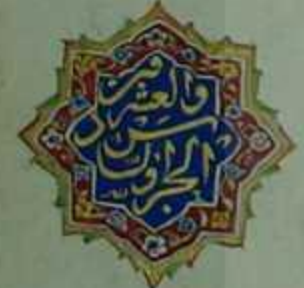 الجزو السا
دس
والعشرون